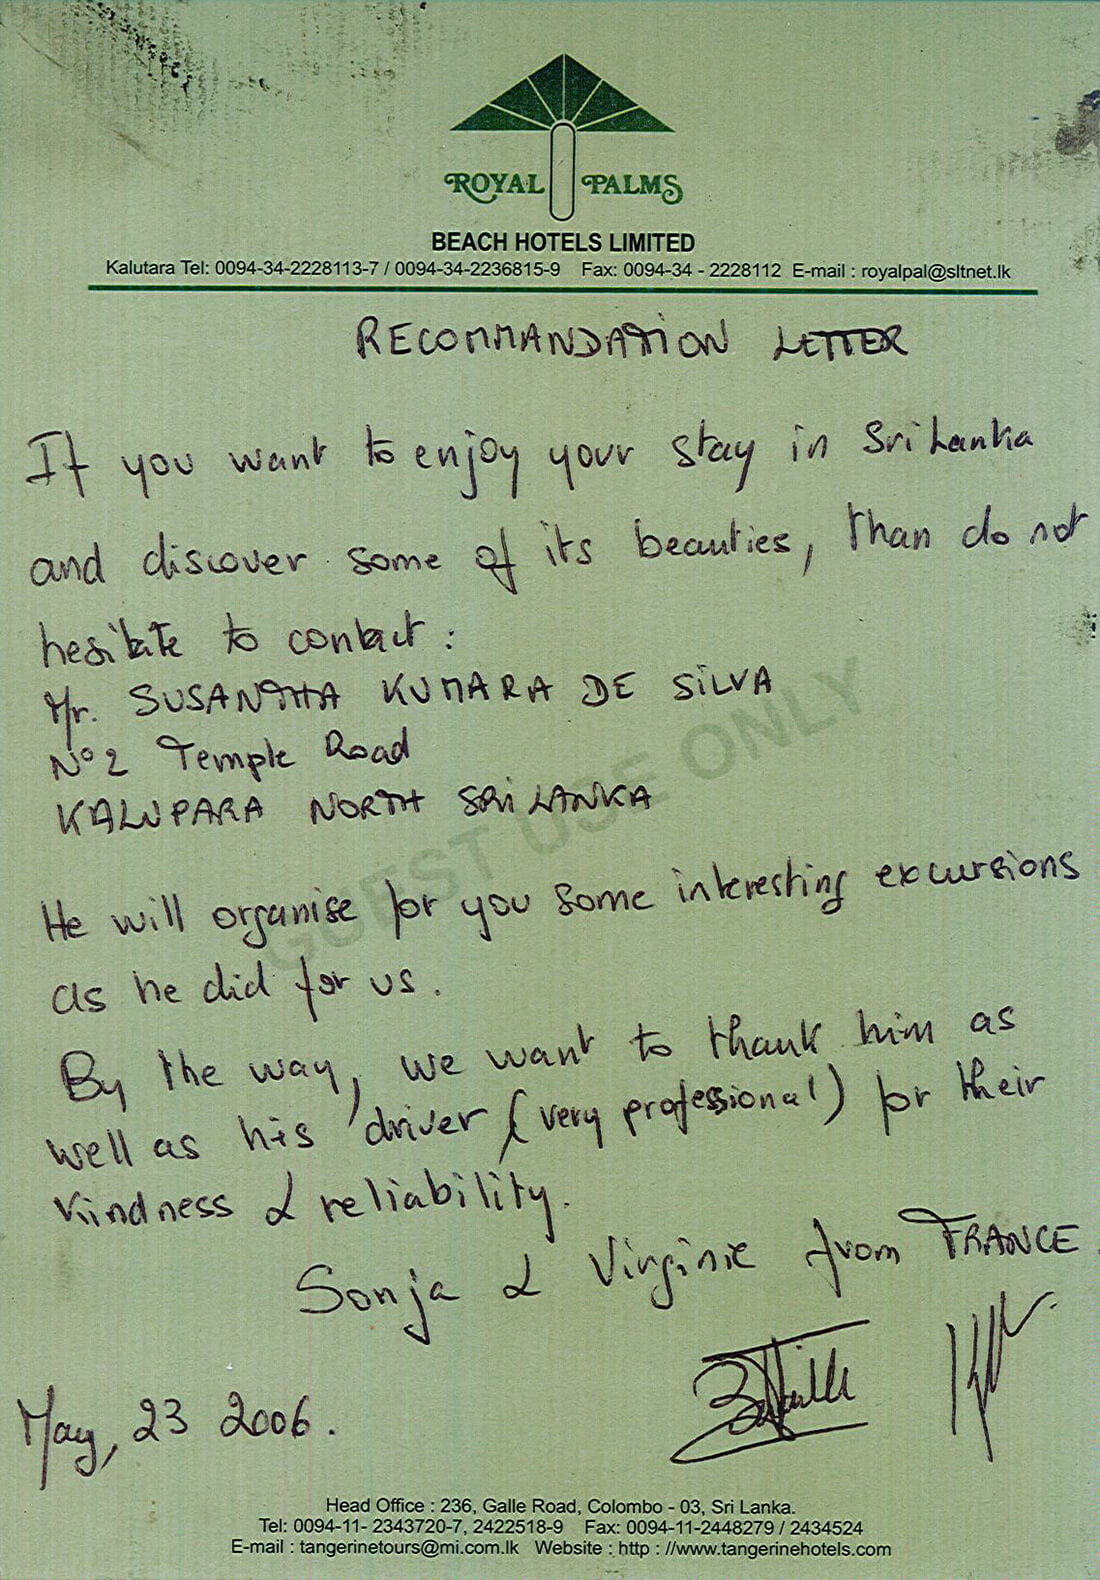 ROYAL PALMS
BEACH HOTELS LIMITED
Kalutara Tel: 0094-34-2228113-7 / 0094-34-2236815-9 Fax: 0094-34 - 2228112 E-mail : royalpal@sltnet.lk
RECOMMANDATION LETTER
If you want to enjoy your stay in Sri Lanka
and discover some of its beauties, than do not
hesitate to contact :
Mr. SUSANTHA KUMARA DE SILVA
N°2 Temple Road
KALUPARA NORTH SRI LANKA
GUEST USE ONLY
He will organise for you some interesting excursions
as he did for us.
By the way, we want to thank him as
well as his driver (very professional) for their
kindness & reliability.
Sonja & Virginie from FRANCE.
May, 23 2006.
Head Office : 236, Galle Road, Colombo - 03, Sri Lanka.
Tel: 0094-11- 2343720-7, 2422518-9 Fax: 0094-11-2448279 / 2434524
E-mail : tangerinetours@mi.com.lk Website : http : //www.tangerinehotels.com